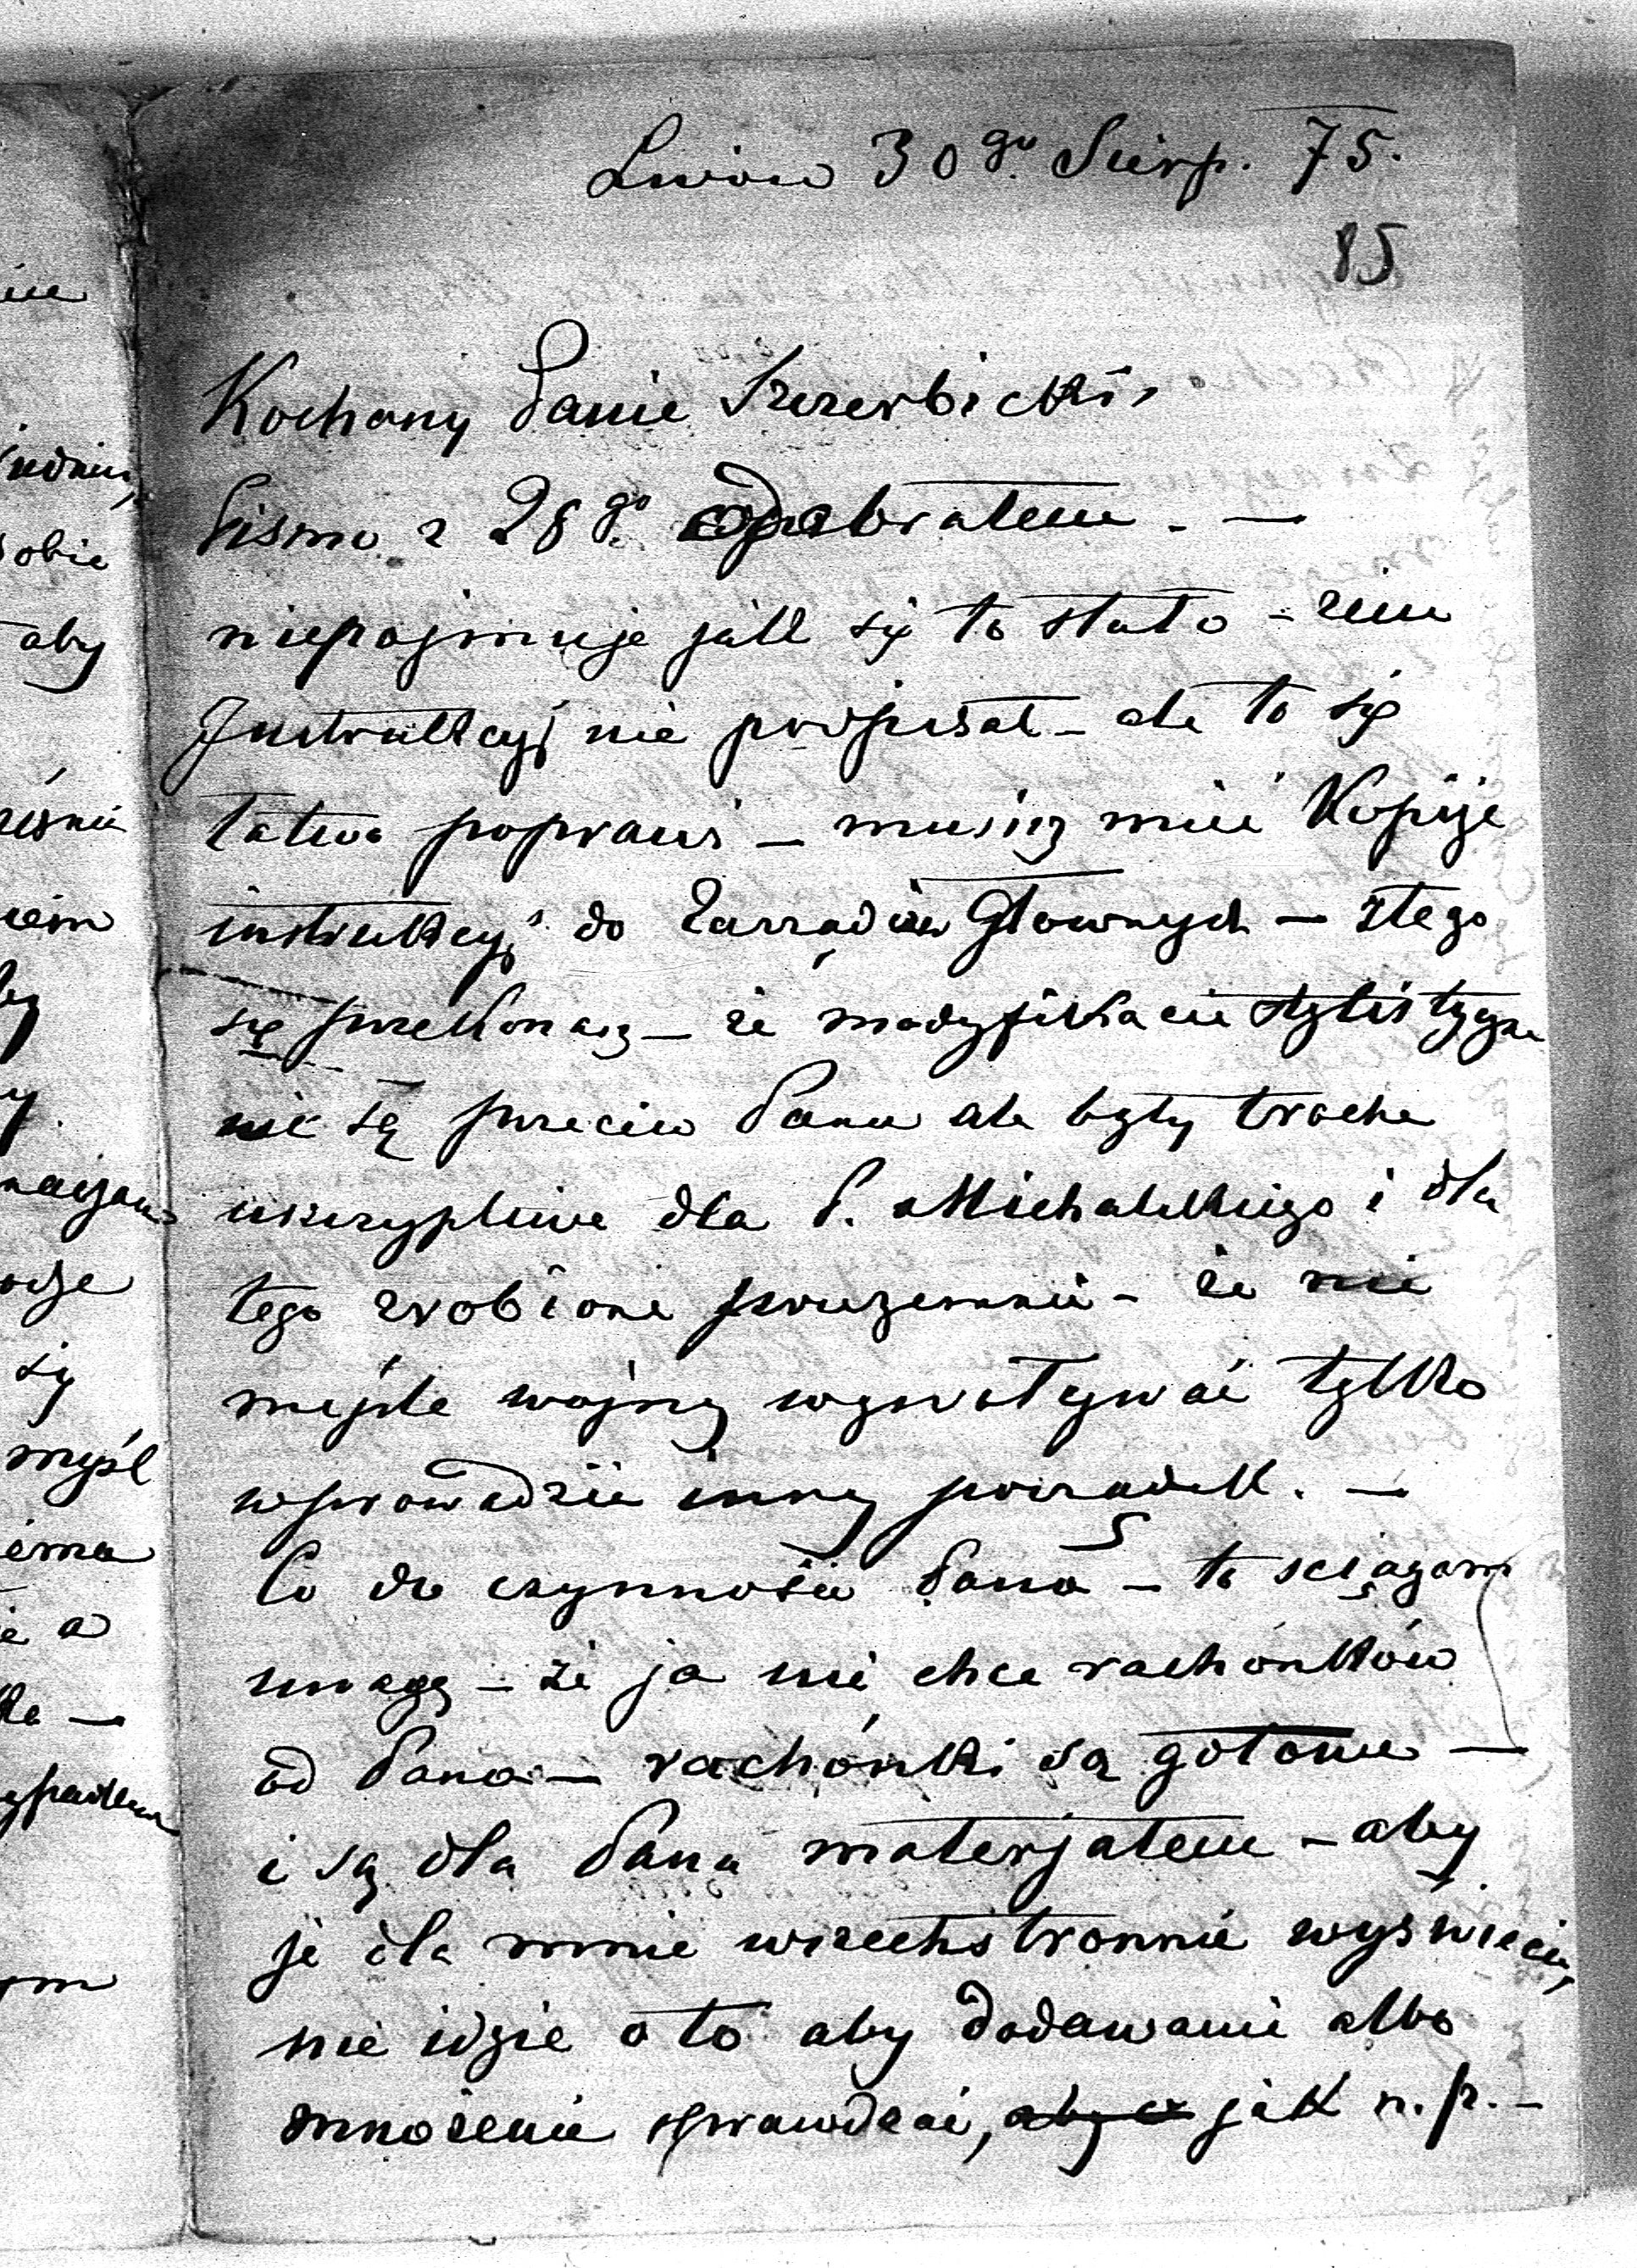 Lwów 30go Sierp. 75.
85
Kochany Panie Szczerbicki,
Pismo z 28go odebrałem. —
niepojmuje jakk się to stało – żem
Instrukcyj nie podpisał – ale to się
łatwo poprawi – musisz mieć Kopije
instrukcyj do Zarządów Głownych – ztego
się przekonasz – że modyfikacie stylistyczne
nie są przeciw Panu ale były troche
uszczypliwe dla P. Michalskiego i dla
tego zrobione przezemnie – że nie
myśle wojny wywoływać tylko
wprowadzić inny porządek. —
Co do czynności Pana – to ściągam
uwagę – że ja nie chce rachónków
od Pana – rachónki są gotowe —
i są dla Pana materjałem – aby
je dla mnie wszechstronnie wyświecić,
nie idzie o to aby dodawanie albo
mnożenie sprawdzać, jak n. p. –